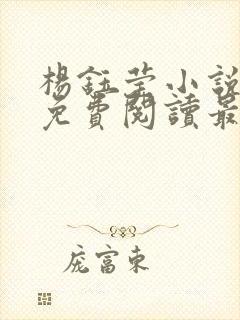 楊鈺瑩小說
免費閱讀最
庞富東